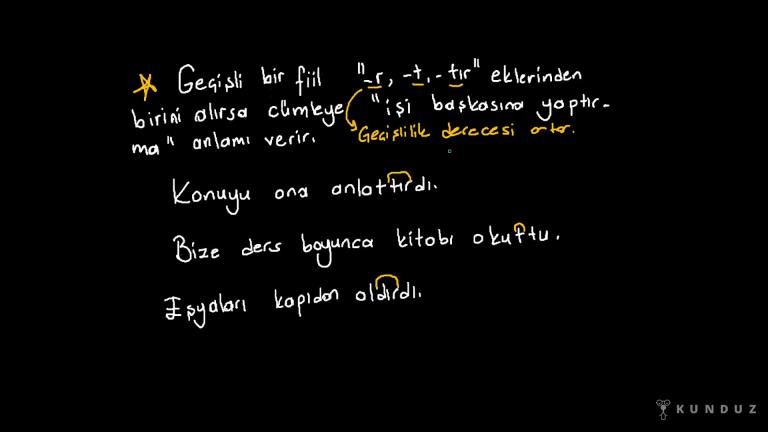 Geçişli bir fiil "-r, -t, -tır" eklerinden
birini alırsa cümleye "işi başkasına yaptır-
ma" anlamı verir. Geçişlilik derecesi artar.
Konuyu ona anlattırdı.
Bize ders boyunca kitabı okuttu.
Eşyaları kapıdan aldırdı.
KUNDUZ